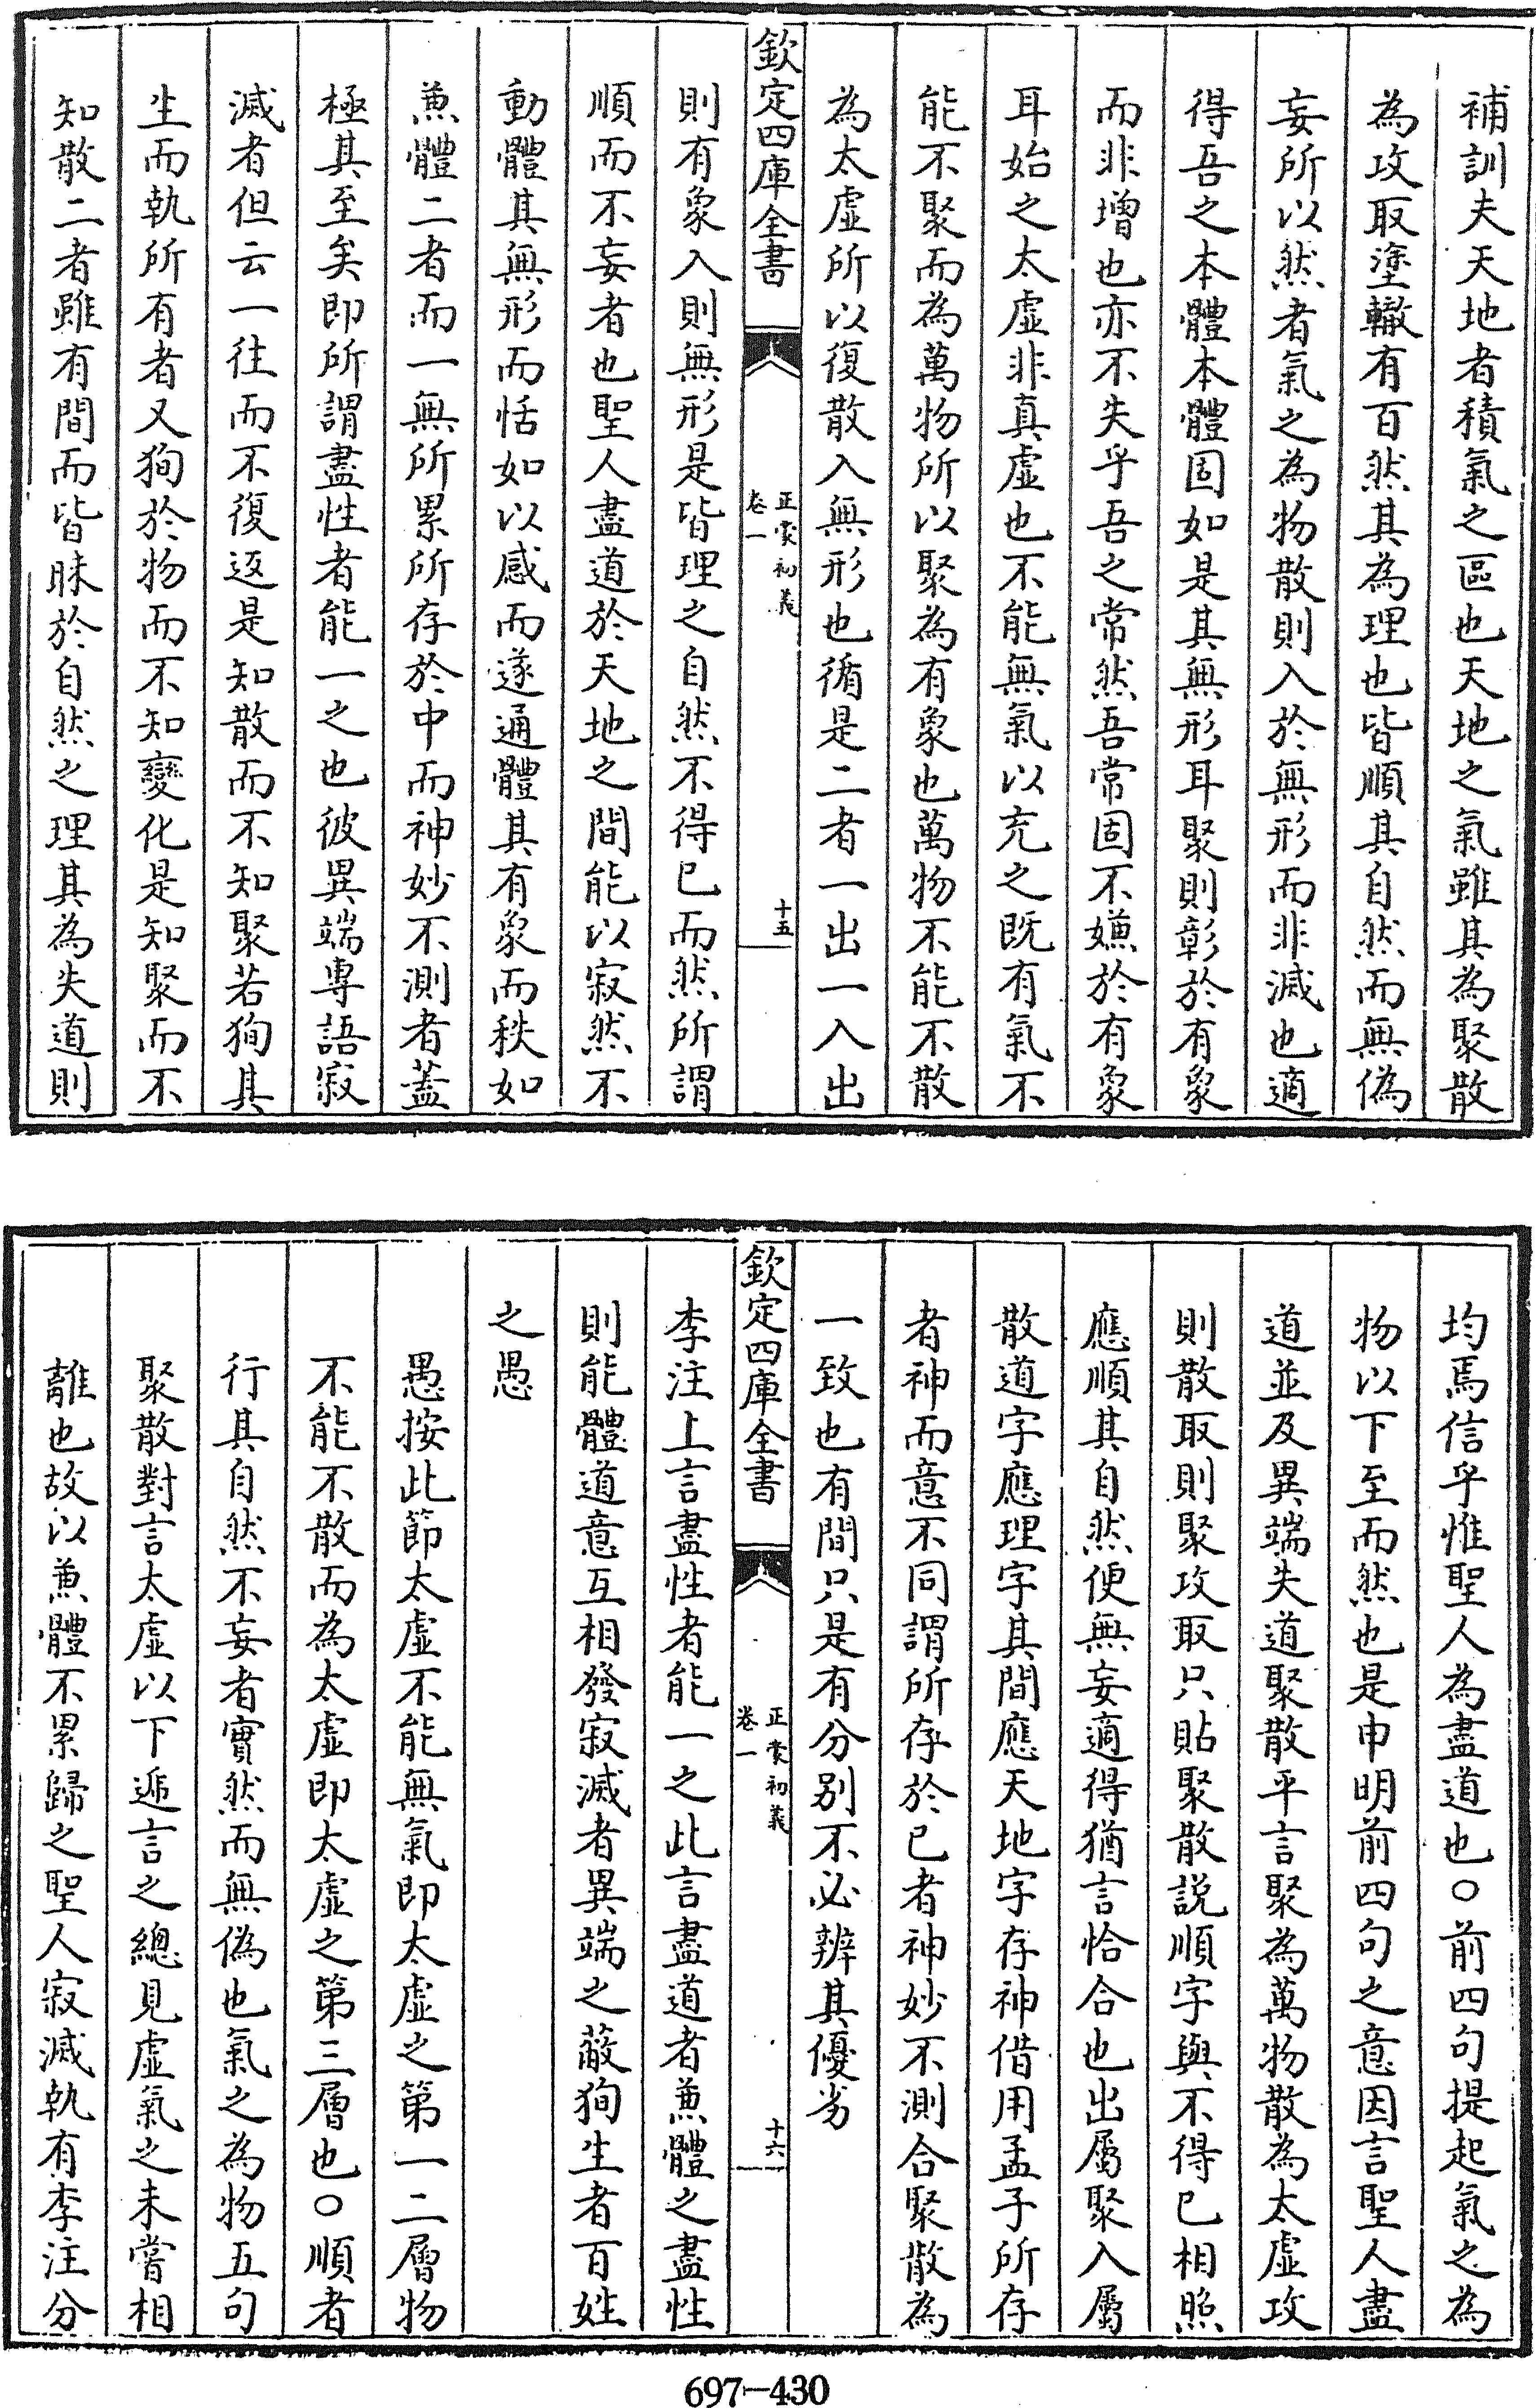 補訓夫天地者積氣之區也天地之氣雖其為聚散
為攻取塗轍有百然其為理也皆順其自然而無偽
妄所以然者氣之為物散則入於無形而非滅也適
得吾之本體本體固如是其無形耳聚則彰於有象
而非增也亦不失乎吾之常然吾常固不嫌於有象
耳始之太虛非真虛也不能無氣以充之既有氣不
能不聚而為萬物所以聚為有象也萬物不能不散
為太虛所以復散入無形也循是二者一出一入出
欽定四庫全書
正蒙初義
卷一
十五
則有象入則無形是皆理之自然不得已而然所謂
順而不妄者也聖人盡道於天地之間能以寂然不
動體其無形而恬如以感而遂通體其有象而秩如
兼體二者而一無所累所存於中而神妙不測者葢
極其至矣即所謂盡性者能一之也彼異端專語寂
滅者但云一往而不復返是知散而不知聚若狥其
生而執所有者又狥於物而不知變化是知聚而不
知散二者雖有間而皆昧於自然之理其為失道則
均焉信乎惟聖人為盡道也○前四句提起氣之為
物以下至而然也是申明前四句之意因言聖人盡
道並及異端失道聚散平言聚為萬物散為太虛攻
則散取則聚攻取只貼聚散説順字與不得已相照
應順其自然便無妄適得猶言恰合也出屬聚入屬
散道字應理字其間應天地字存神借用孟子所存
者神而意不同謂所存於已者神妙不測合聚散為
一致也有間只是有分别不必辨其優劣
欽定四庫全書
正蒙初義
卷一
十六
李注上言盡性者能一之此言盡道者兼體之盡性
則能體道意互相發寂滅者異端之蔽狥生者百姓
之愚
愚按此節太虛不能無氣即太虛之第一二層物
不能不散而為太虛即太虛之第三層也○順者
行其自然不妄者實然而無偽也氣之為物五句
聚散對言太虛以下遞言之總見虛氣之未嘗相
離也故以兼體不累歸之聖人寂滅執有李注分
697-430